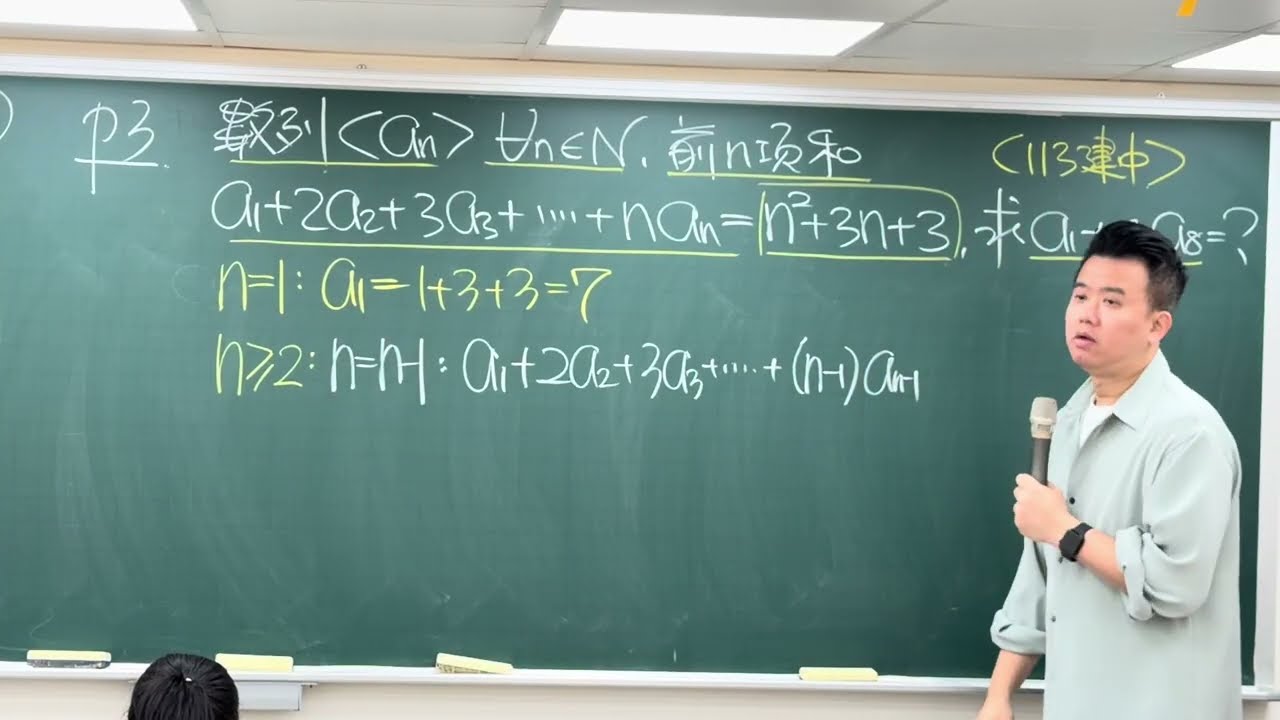 P3. 數列<aₙ> ∀n∈N, 前n項和 <113建中>
a₁+2a₂+3a₃+⋯+naₙ=n²+3n+3, 求a₁ a₈=?
n=1: a₁=1+3+3=7
n≥2: n=n-1: a₁+2a₂+3a₃+⋯+(n-1)aₙ₋₁